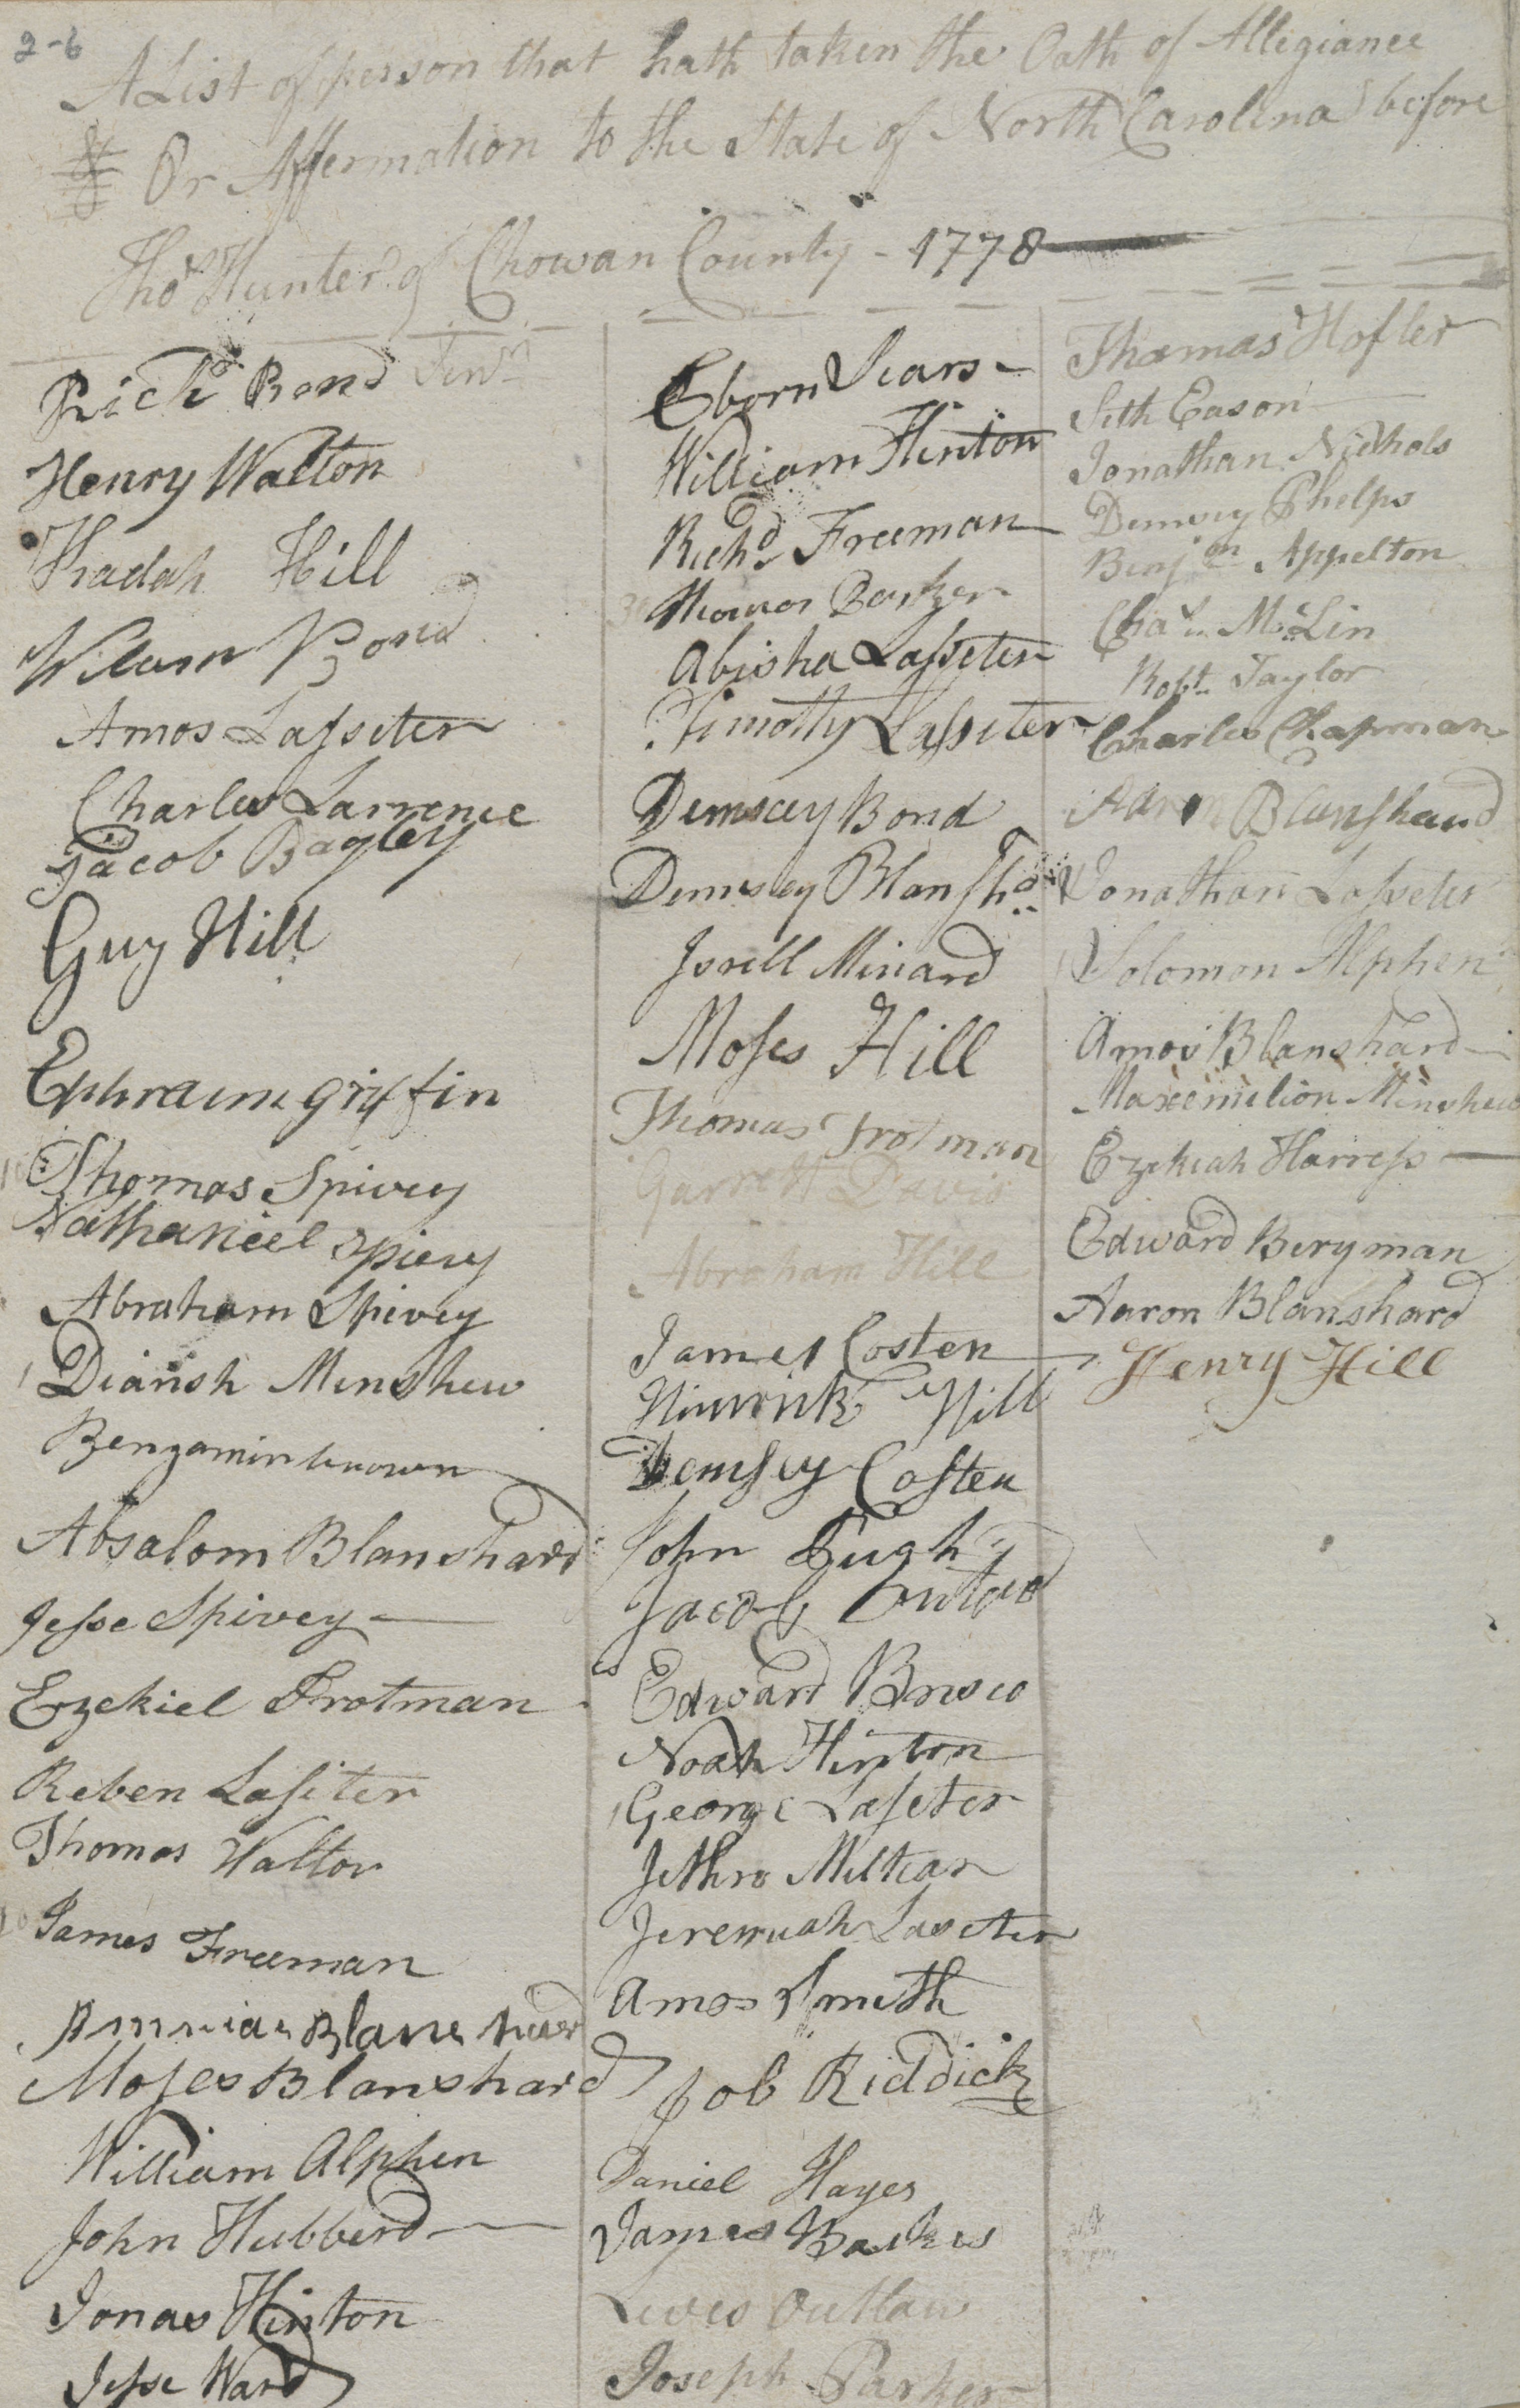 2-6
A List of person that hath taken the Oath of Allegiance
Or Affermation to the State of North Carolina before
Tho.s Hunter of Chowan County - 1778
Rich.d Bond Jun.r
Henry Walton
Kadah Hill
Wilam Bond
Amos Lassiter
Charles Larrence
Jacob Bagley
Guy Hill
Ephraim griffin
Thomas Spivey
Nathaneel Spivey
Abraham Spivey
Minshew
Benjamin
Absalom Blanshard
Jesse Spivey
Ezekiel Trotman
Reben Lasiter
Thomas Walton
James Freeman
Blanshard
Moses Blanshard
William Alphin
John Hubberd
Jonas Hinton
Jesse Ward
Eborn Sears
William Hinton
Rich.d Freeman
Thomas Barker
Abisha Lasseter
Timothy Lassiter
Demsey Bond
Demsey Blansh.d
Isrell Minard
Moses Hill
Thomas Trotman
Garrett Davis
Abraham Hill
James Costen
Hill
Demsey Costen
John
Jacob Outlaw
Edward Brisco
Noah Hinton
George Laseter
Jethro Miltear
Jeremiah Laseter
Amos Smith
Job Riddick
Daniel Hayes
James
Lewis Outlaw
Joseph Parker
Thomas Hofler
Seth Eason
Jonathan Nichols
Demsey Phelps
Benj.an Appelton
Cha.s M.cLin
Rob.t Taylor
Charles Chapman
Aaron Blanshard
Jonathan Lasseter
Solomon Alphen
Amos Blanshard
Maxemilion Minshew
Ezekiah Harress
Edward Beryman
Aaron Blanshard
Henry Hill